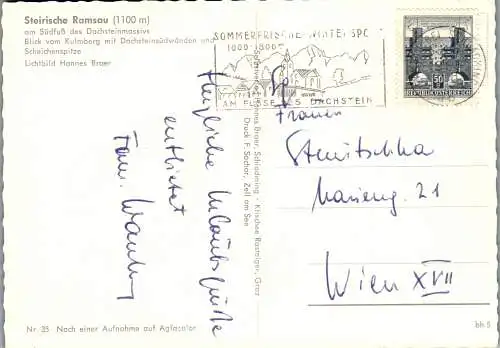 Steirische Ramsau (1100 m)
am Südfuß des Dachsteinmassivs
Blick vom Kulmberg mit Dachsteinsüdwänden und
Scheichenspitze
Lichtbild Hannes Braer
SOMMERFRISCHE-WINTERSPO
1000-1800
AM FUSSE DES DACHSTEIN
50
REPUBLIK ÖSTERREICH
Herzliche Urlaubsgrüße
entbietet
Fam.
Sportverlag Hannes Braer, Schladming - Klischee Rasteiger, Graz
Druck F. Sochor, Zell am See
Frauen
Marieng. 21
Wien XVII
Nr. 25 Nach einer Aufnahme auf Agfacolor
bh 5